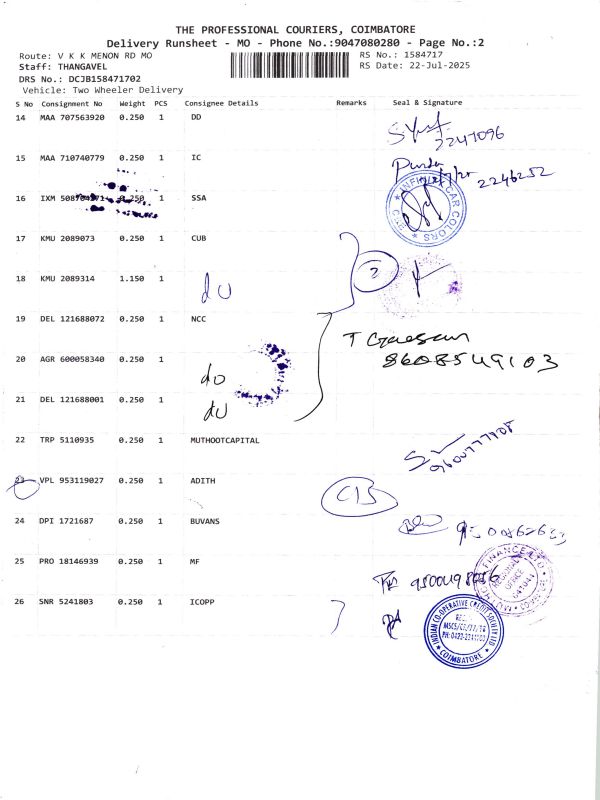 THE PROFESSIONAL COURIERS, COIMBATORE
Delivery Runsheet - MO - Phone No.:9047080280 - Page No.:2
Route: V K K MENON RD MO
RS No.: 1584717
Staff: THANGAVEL
RS Date: 22-Jul-2025
DRS No.: DCJB158471702
Vehicle: Two Wheeler Delivery
S No Consignment No Weight PCS Consignee Details Remarks Seal & Signature
14 MAA 707563920 0.250 1 DD
2247096
15 MAA 710740779 0.250 1 IC
2246252
16 IXM 0.250 1 SSA
INFINITI CAR COLORS
17 KMU 2089073 0.250 1 CUB
2
18 KMU 2089314 1.150 1
do
19 DEL 121688072 0.250 1 NCC
8608549103
20 AGR 600058340 0.250 1
do
21 DEL 121688001 0.250 1
do
22 TRP 5110935 0.250 1 MUTHOOTCAPITAL
23 VPL 953119027 0.250 1 ADITH
24 DPI 1721687 0.250 1 BUVANS
25 PRO 18146939 0.250 1 MF
REGIONAL OFFICE
26 SNR 5241803 0.250 1 ICOPP
INDIAN CO-OPERATIVE CREDIT SOCIETY LTD
COIMBATORE